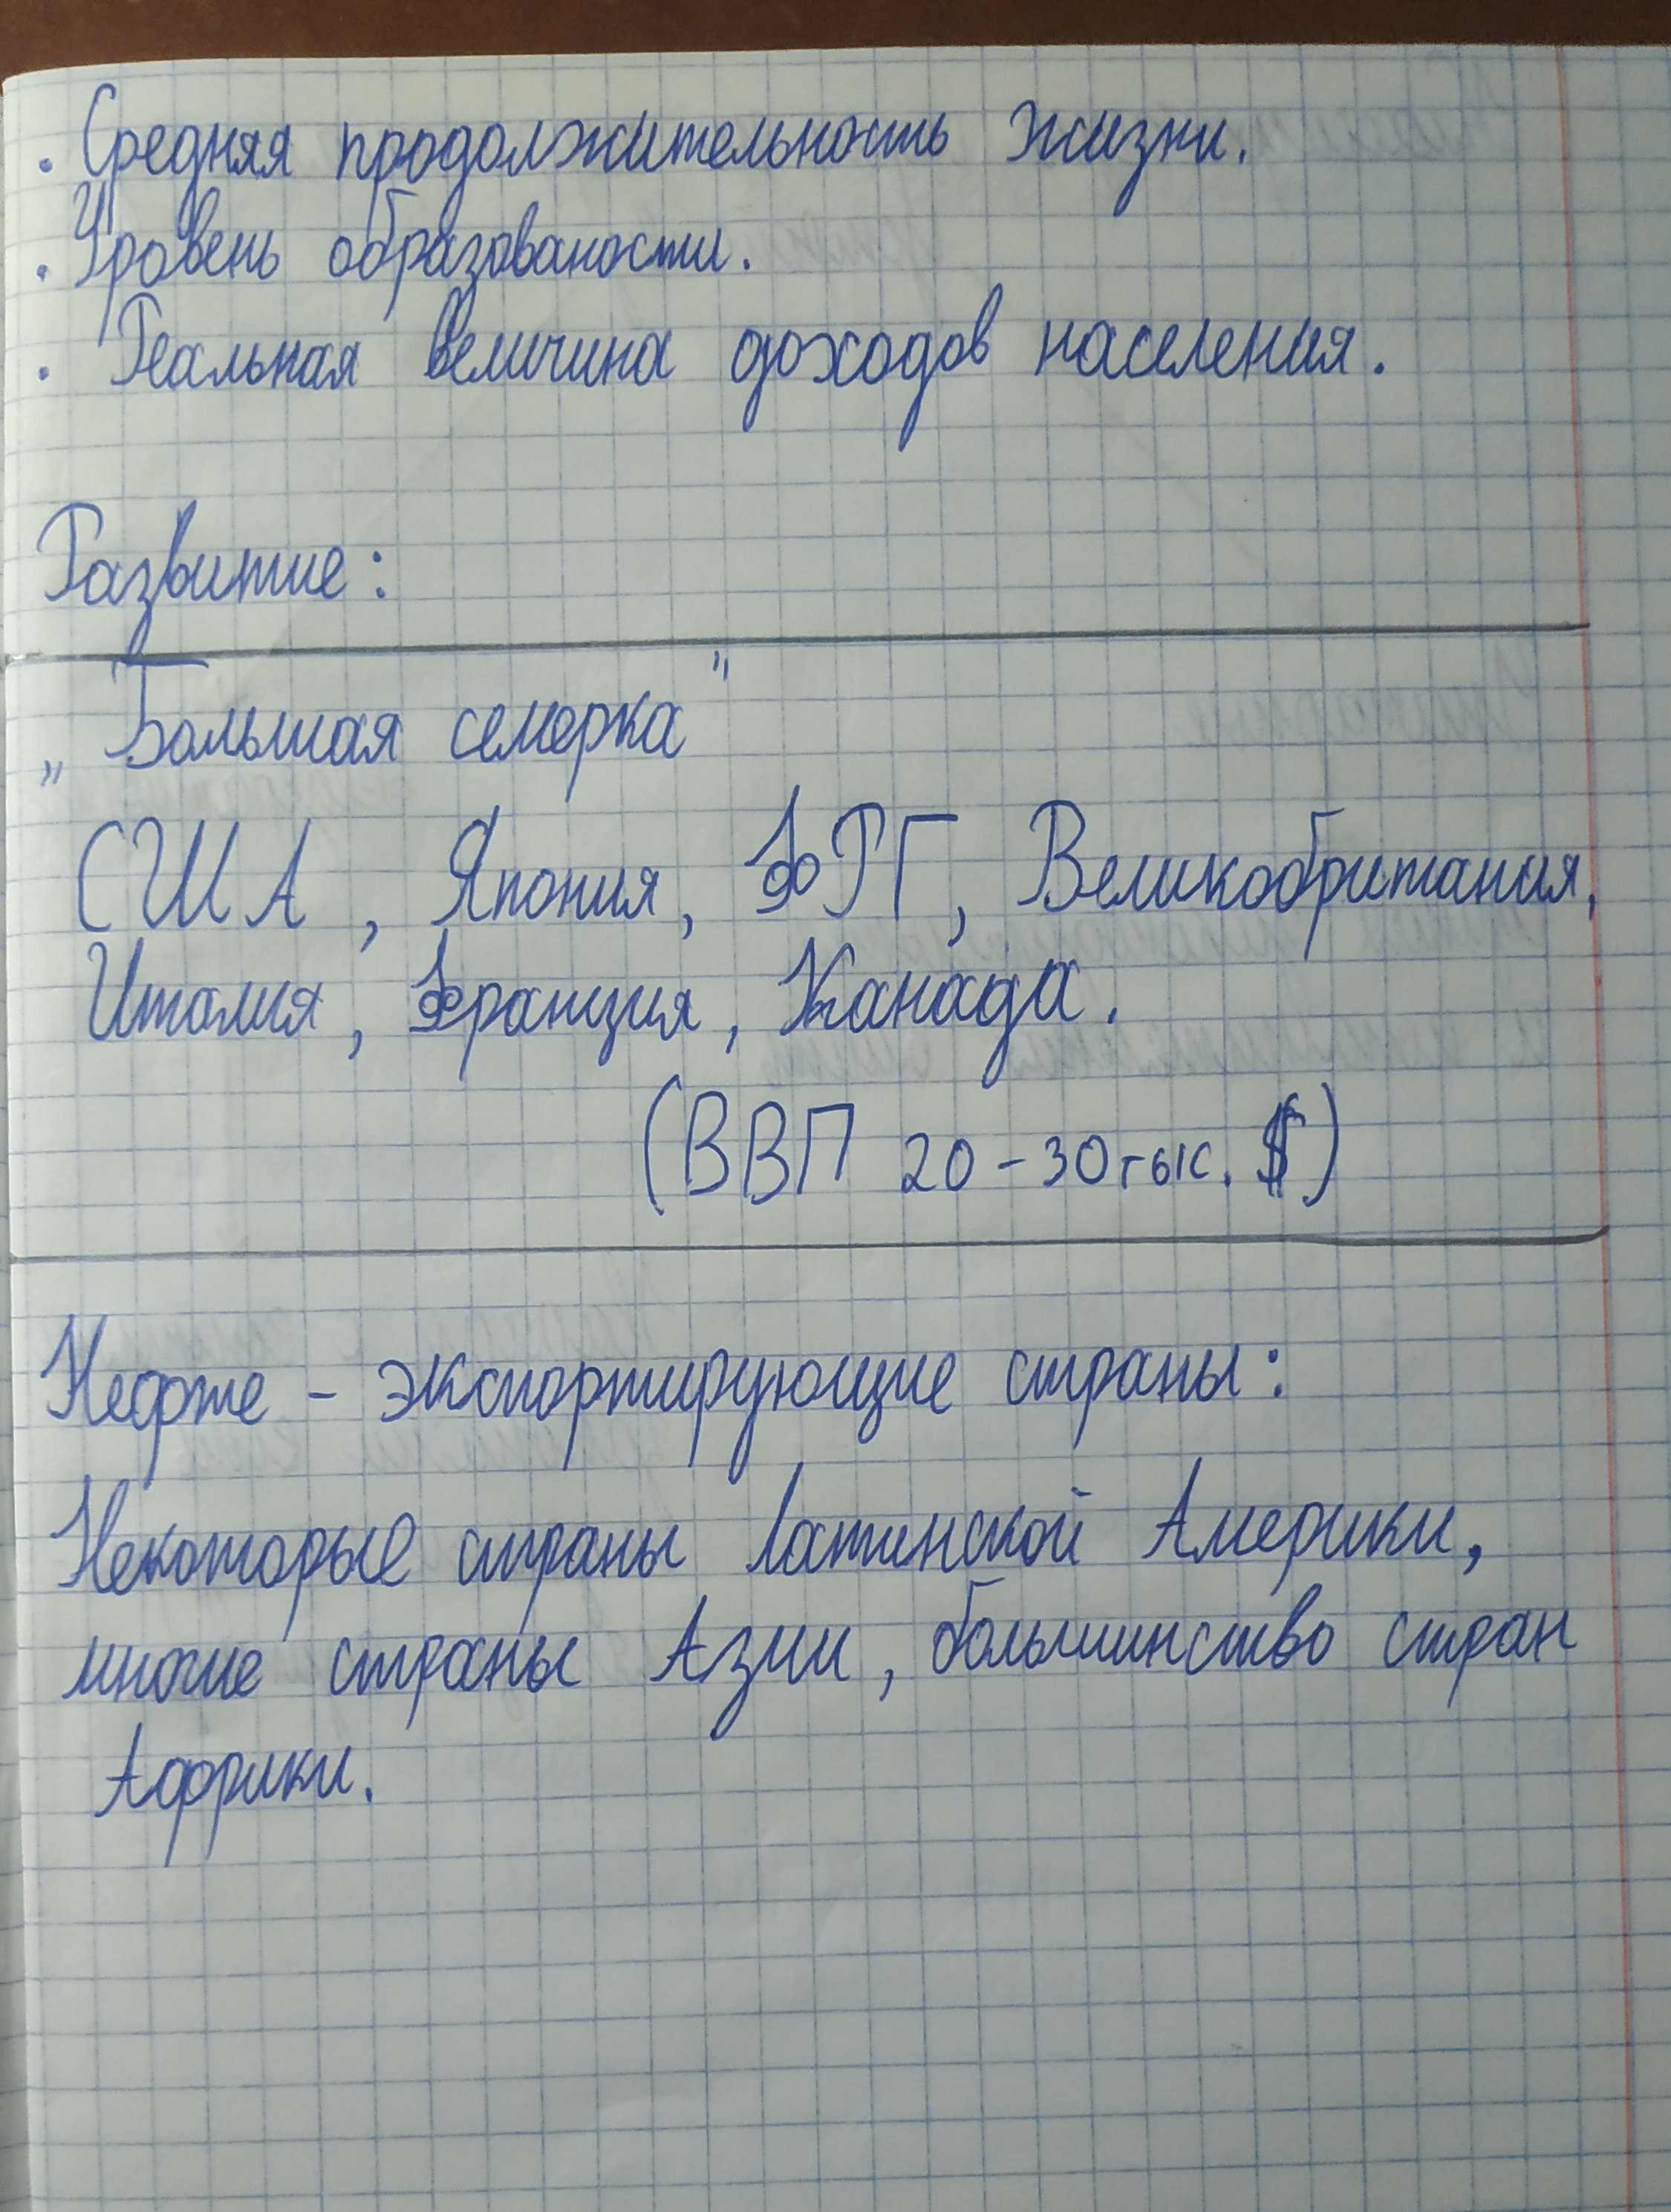 . Средняя продолжительность жизни.
. Уровень образованости.
. Реальная величина доходов населения.
Развитие:
„Большая семерка"
США, Япония, ФРГ, Великобритания,
Италия, Франция, Канада.
(ВВП 20-30тыс. $)
Нефте - экспортирующие страны:
Некоторые страны Латинской Америки,
многие страны Азии, большинство стран
Африки.